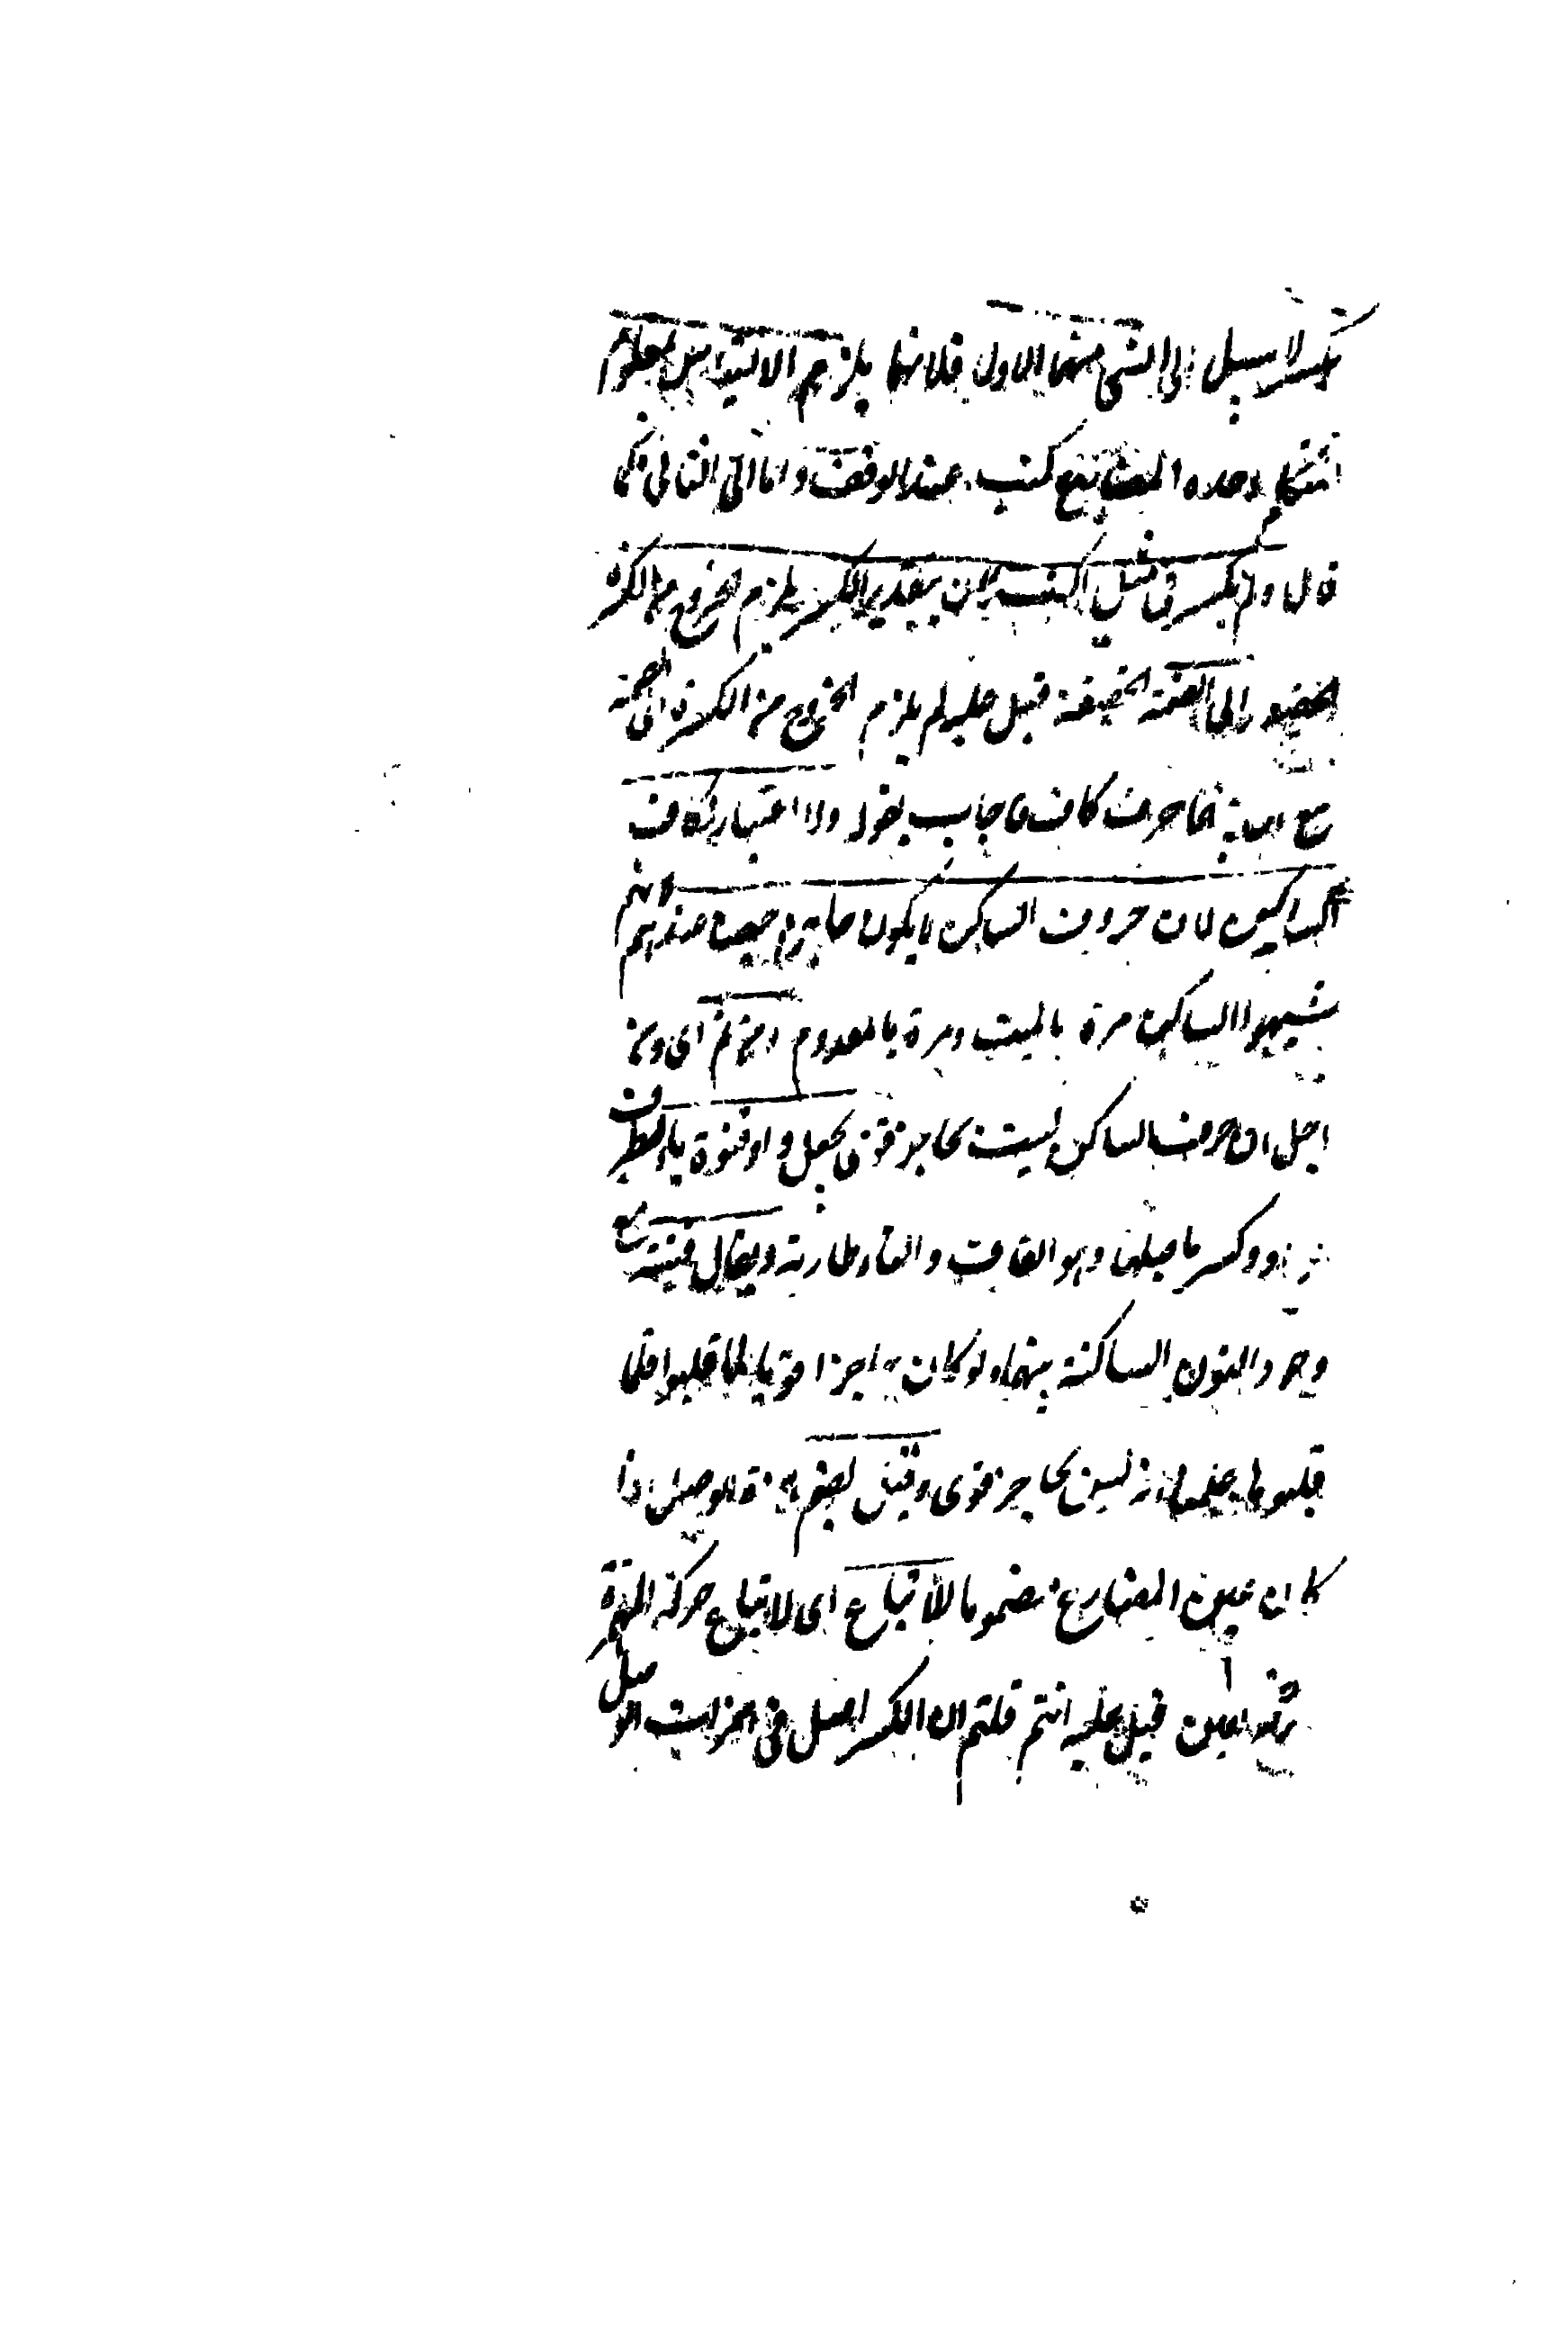 لا سبيل الى الشئ منهما الاول فلانها يلزم الالتباس بمعلوم
المتكلم وحده المضارع كتب عند الوقف واما الثاني فكما
قال ولم يكسر في مثل اكتب لان بتقدير الكسر يلزم الخروج من الكسرة
الى الضمة الخفيفة قيل عليه لم يلزم الخروج من الكسرة الى الضمة
مع ان بينهما حرف كاف فاجاب بقوله ولا اعتبار لكاف
الساكن لان حروف الساكن لا يكون حاجزا حصينا عندهم لانهم
شبهوا الساكن مرة بالميت ومرة بالمعدوم ومن ثم اى ومن
اجل ان حرف الساكن ليست بحاجز قوى يجعل واو قنوة ياء لتطرف
الواو وكسر ما قبلها وهو القاف والتاء طارية ويقال قنية مع
وجود النون الساكنة بينهما ولو كان حاجزا قويا لما قلبوا فلما
قلبوها علمنا انه ليس بحاجز قوى وقيل بضم همزة الوصل اذا
كان عين المضارع مضموما للاتباع اى لاتباع حركة الهمزة
حركة العين قيل عليه انتم قلتم ان الكسر اصل في همزات الوصل